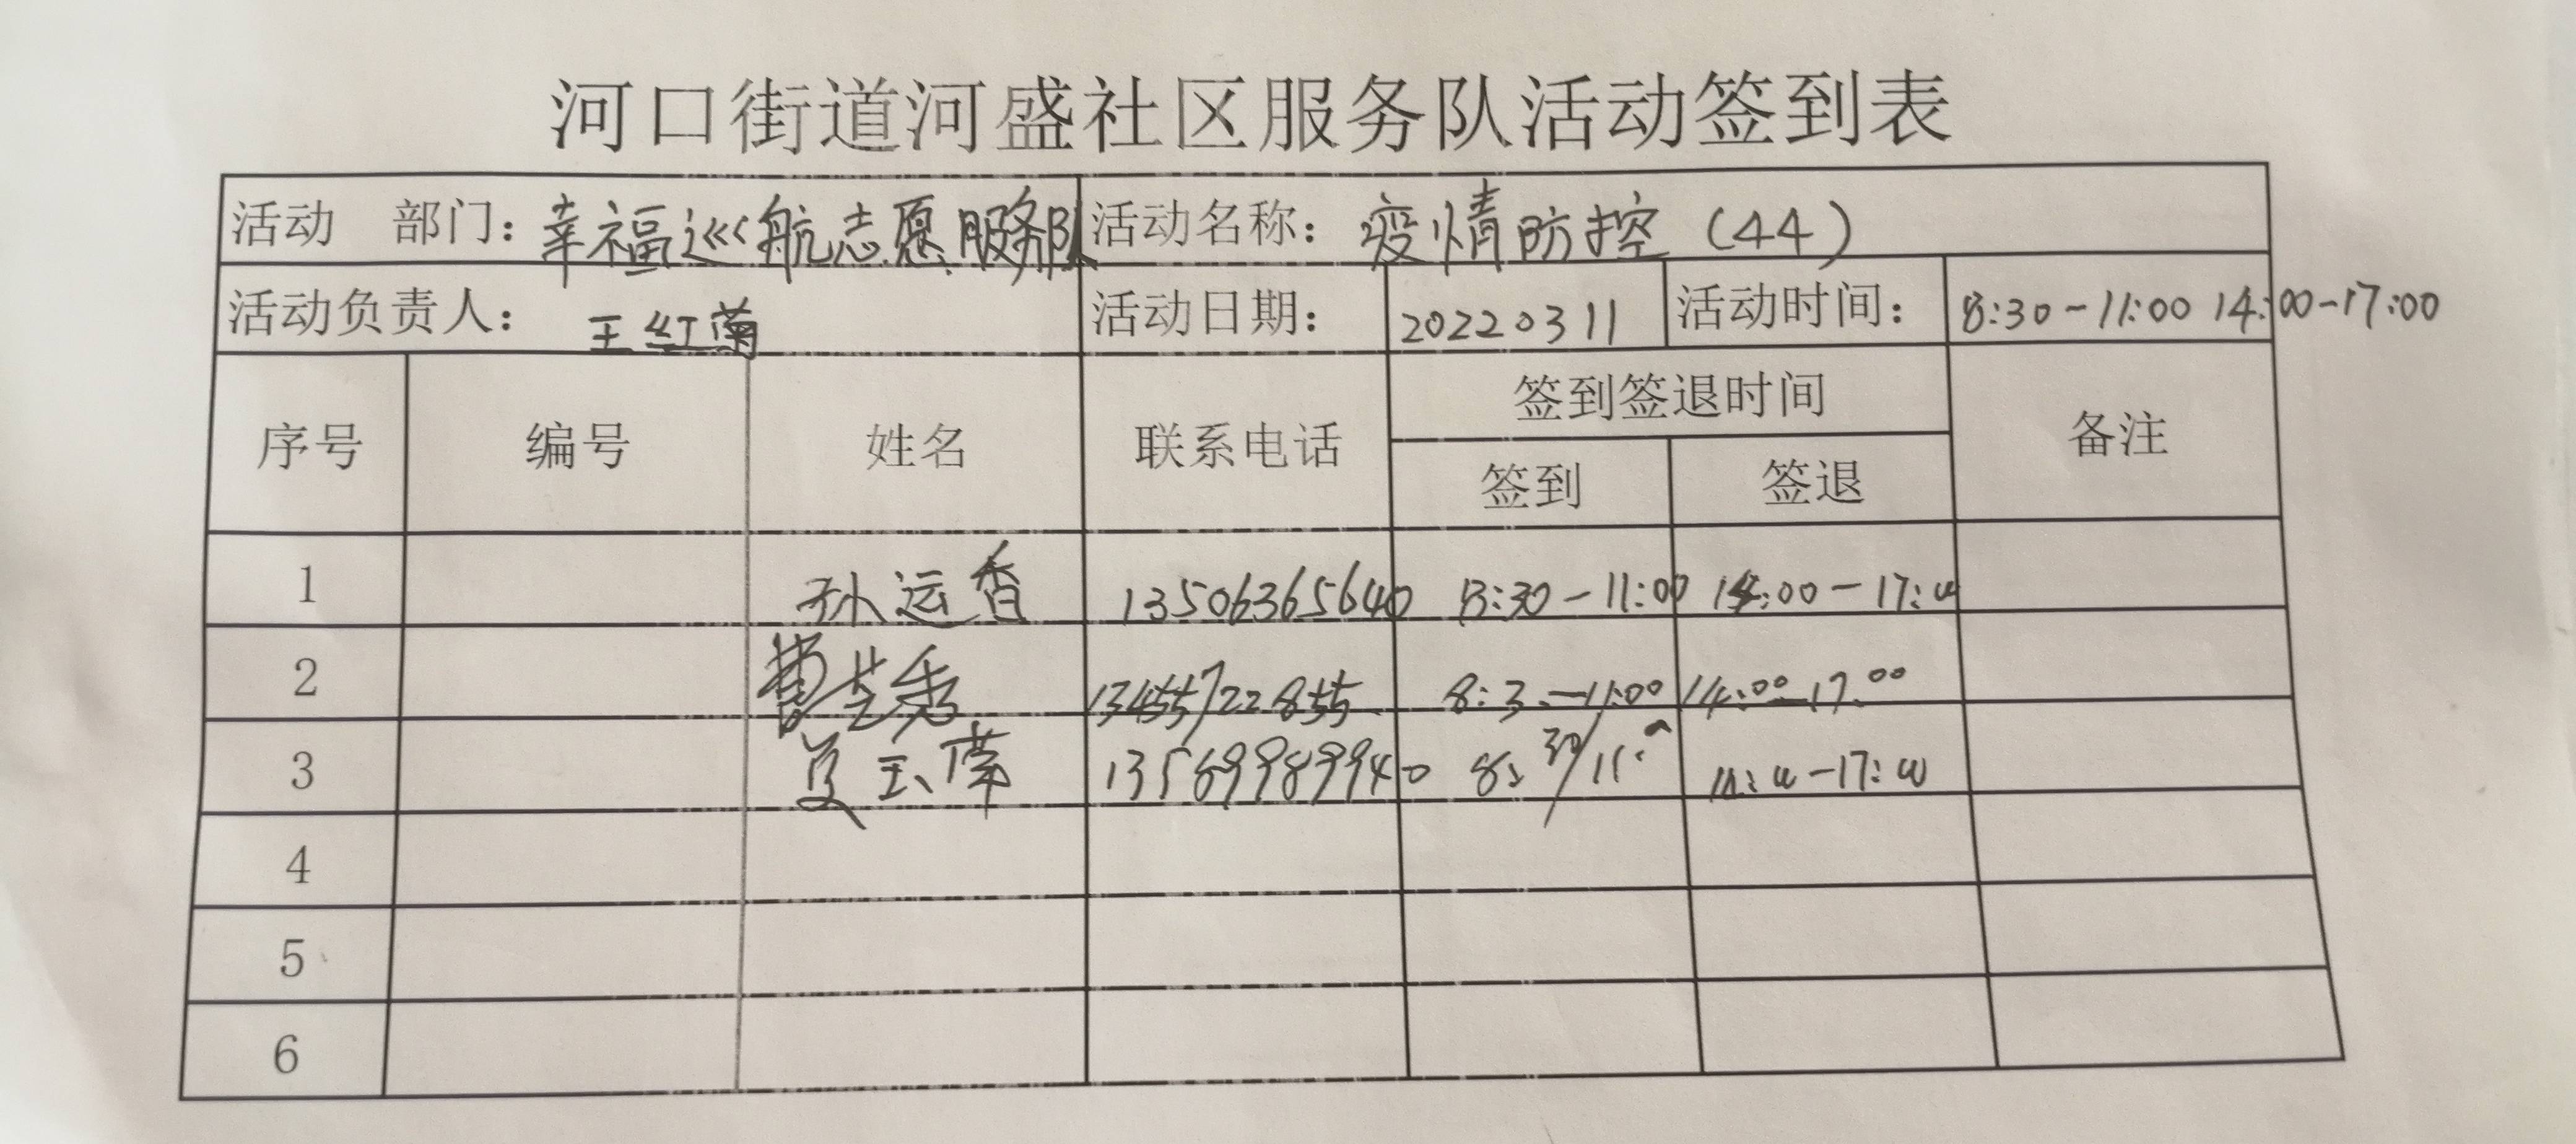 河口街道河盛社区服务队活动签到表
活动 部门：幸福巡航志愿服务队 活动名称：疫情防控（44）
活动负责人：王红菊 活动日期：20220311 活动时间：8:30-11:00 14:00-17:00
序号 编号 姓名 联系电话 签到签退时间 备注
签到 签退
1 孙运香 13506365640 8:30-11:00 14:00-17:00
2 曹芝秀 13455722855 8:30-11:00 14:00-17:00
3 玉 13569989940 8:30/11:00 14:00-17:00
4
5
6